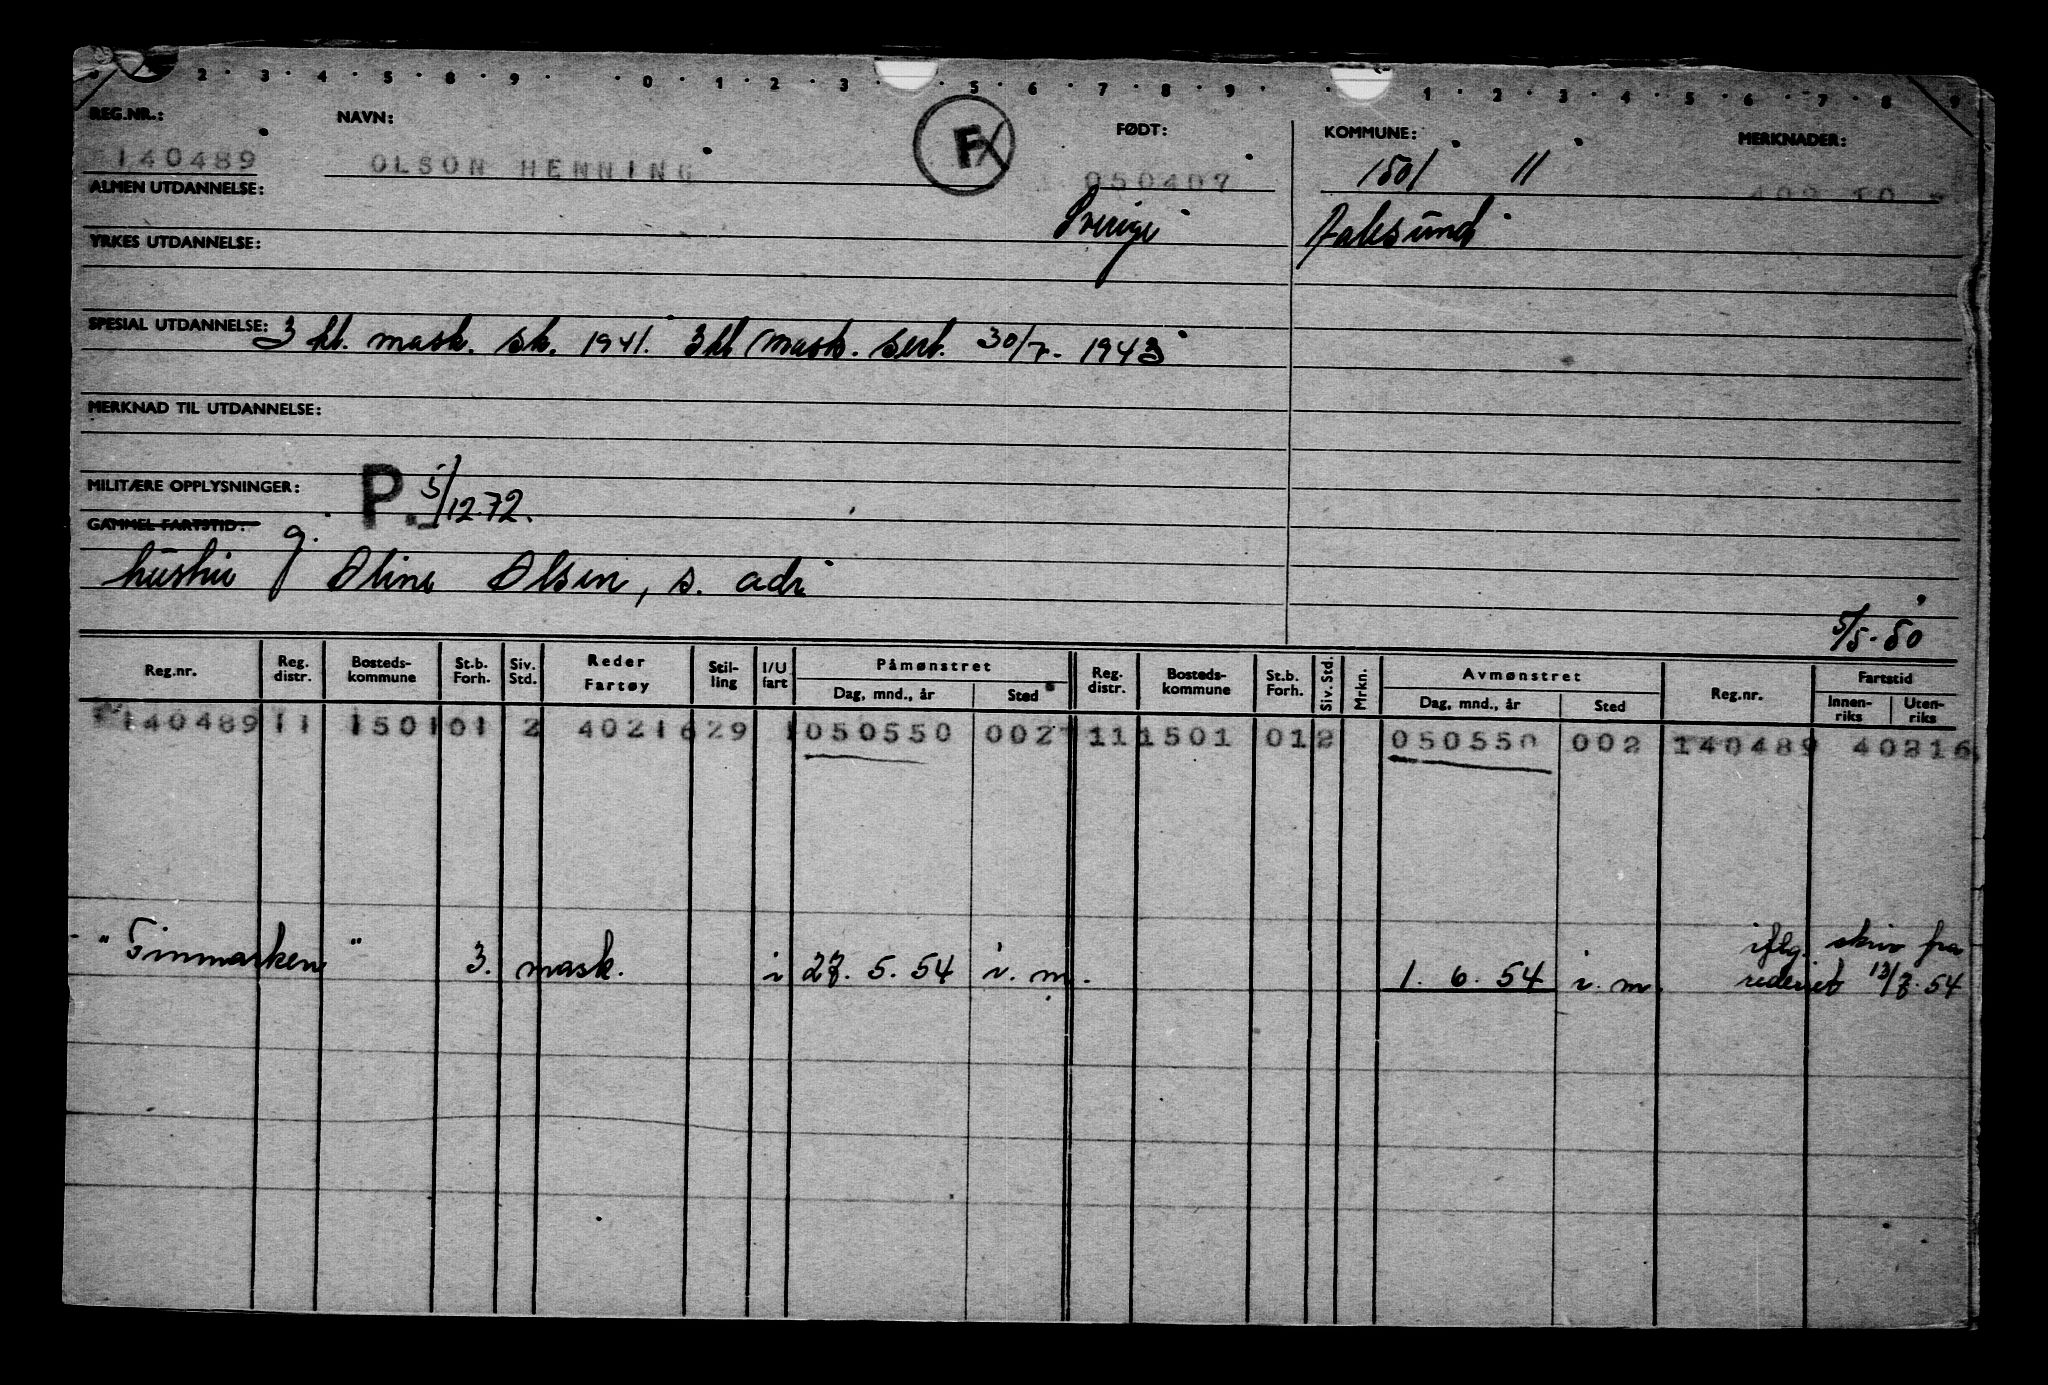 2 · 3 · 4 · 5 · 8 · 9 · · 0 · 1 · 2 · 3 · 5 · 6 · 7 · 8 · 9 · · 1 · 2 · 3 · 4 · 5 · 6 · 7 · 8 · 9
REG.NR.: NAVN: FX FØDT: KOMMUNE: MERKNADER:
140489 OLSON HENNING 050407 1501 11
ALMEN UTDANNELSE:
Sverige
YRKES UTDANNELSE:
SPESIAL UTDANNELSE: 3 kl. mask. sk. 1941. 3 kl mask. sert. 30/7. 1943
MERKNAD TIL UTDANNELSE:
MILITÆRE OPPLYSNINGER: P. 5/12.72.
GAMMEL FARTSTID:
hustru g. Oline Olsen, s. adr
5/5.50
Reg.nr. Reg. distr. Bosteds-kommune St.b. Forh. Siv. Std. Reder Fartøy Stil-ling I/U fart Påmønstret Dag, mnd., år Sted Reg. distr. Bosteds-kommune St.b. Forh. Siv. Std. Mrkn. Avmønstret Dag, mnd., år Sted Reg.nr. Fartstid Innen-riks Uten-riks
140489 11 1501 01 2 40216 29 1 050550 002 11 1501 01 2 050550 002 140489 40216
"Finmarken" 3. mask. i 27. 5. 54 i. m. 1. 6. 54 i. m. iflg. skriv fra
rederiet 54